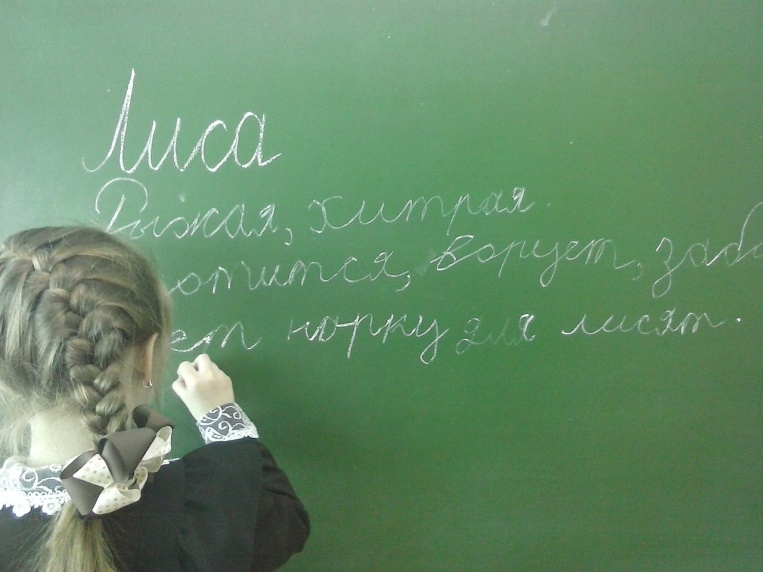 Лиса
Рыжая, хитрая.
отится, ворует, забо
ет норку для лисят.